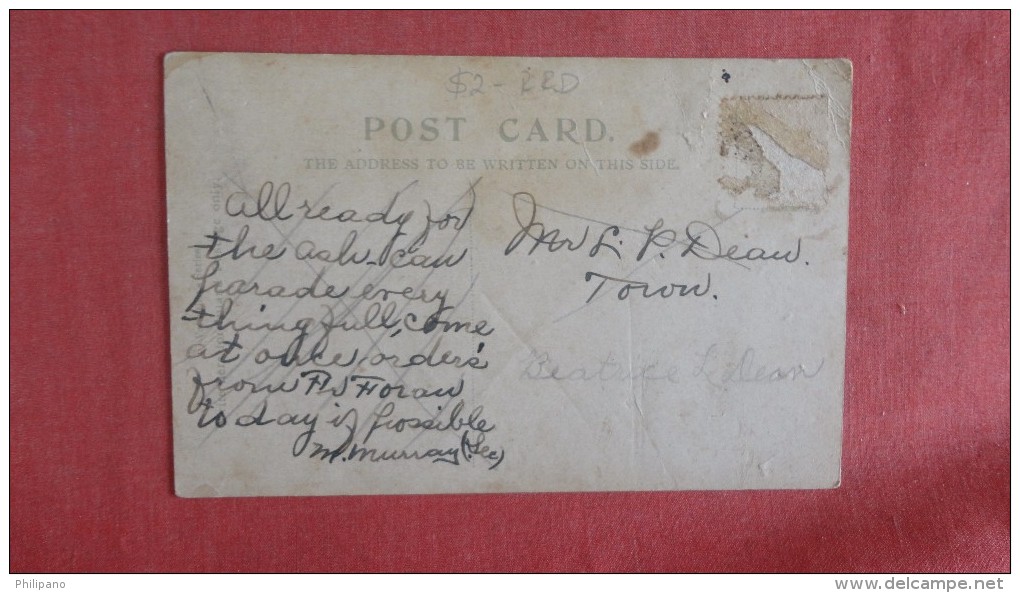 $2 -
POST CARD.
THE ADDRESS TO BE WRITTEN ON THIS SIDE.
all ready for
the ash-can
parade every
thing full, come
at once orders'
from Foran
to day if possible
M. Murray (Sec)
Mr L. P. Dean.
Town.
Beatrice L Dean
Philipano
www.delcampe.net